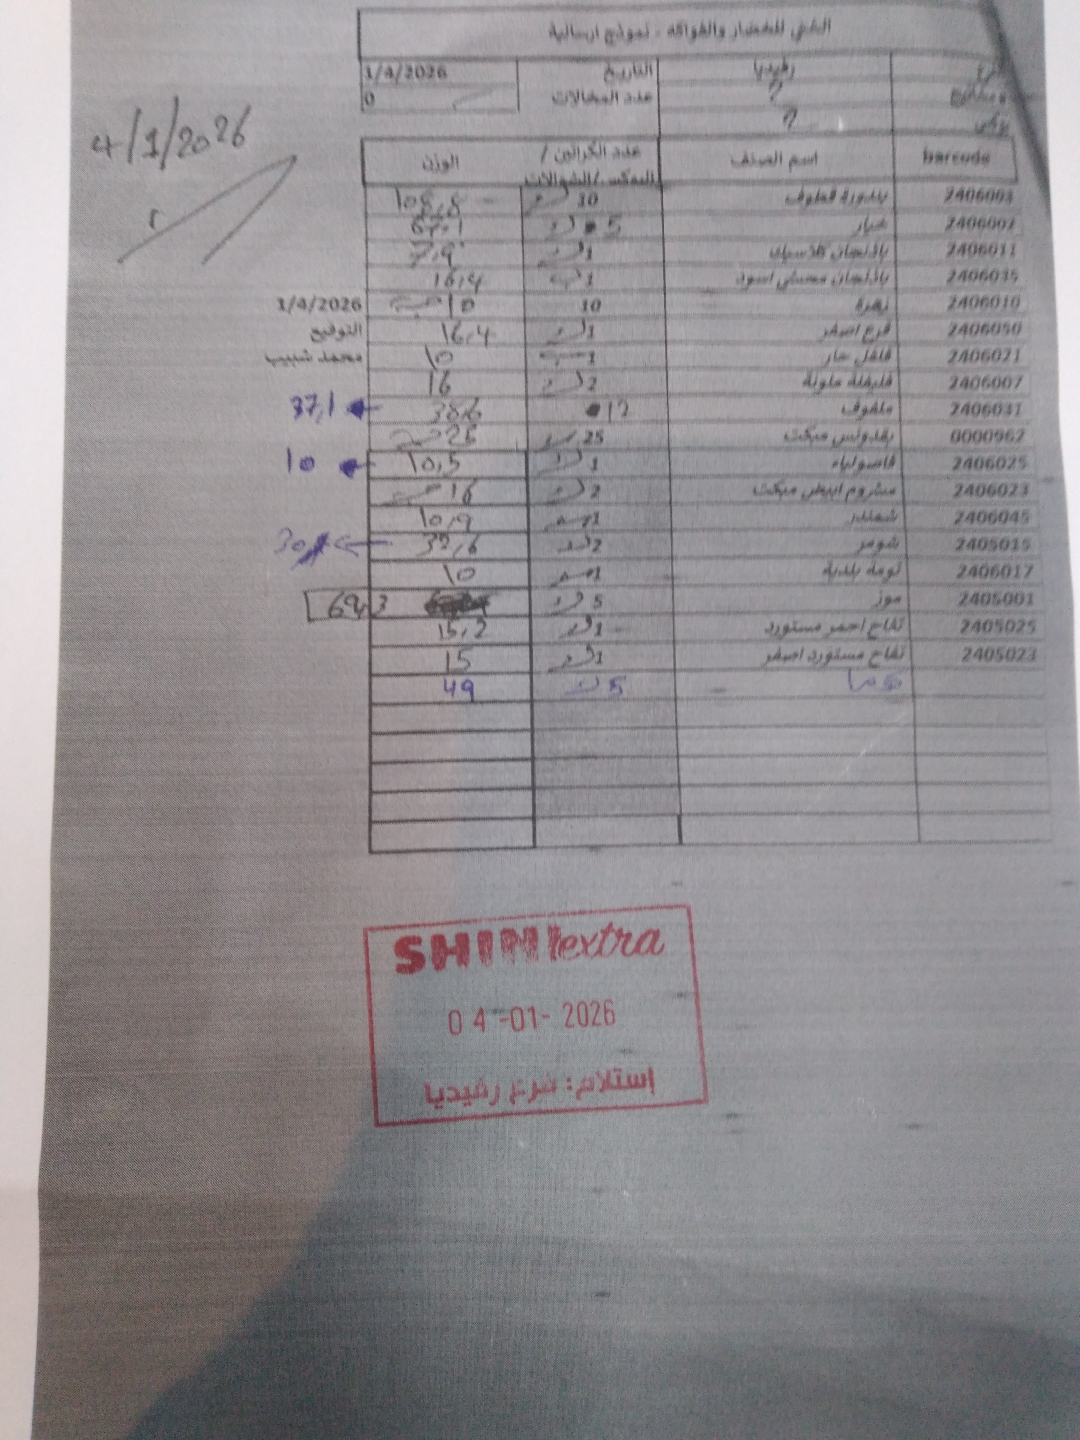 الشني للخضار والفواكه - نموذج ارسالية
رفيديا التاريخ 1/4/2026
? عدد المشالات 0
?
4/1/2026
barcode اسم الصنف عدد الكراتين / البوكس/الشوالات الوزن
2406001 بندورة قطوف 10 108,8
2406002 خيار 5 67,1
2406011 باذنجان كلاسيك 1 7,9
2406035 باذنجان محشي اسود 1 16,4
2406010 زهرة 10 10 1/4/2026
2406050 قرع اصفر 1 16,4 التوقيع
2406021 فلفل حار 1 10 محمد شبيب
2406007 فليفلة ملونة 2 16
2406031 ملفوف 12 38,6 37,1
0000962 بقدونس مبكت 25 25
2406025 فاصولياء 1 10,5 10
2406023 مشروم ابيض مبكت 2 16
2406045 شمندر 1 10,9
2405015 شومر 2 32,6
2406017 ثومة بلدية 1 10
2405001 موز 5 69,3
2405025 تفاح احمر مستورد 1 15,2
2405023 تفاح مستورد اصفر 1 15
5 49
SHINI extra
04-01-2026
إستلام: فرع رفيديا